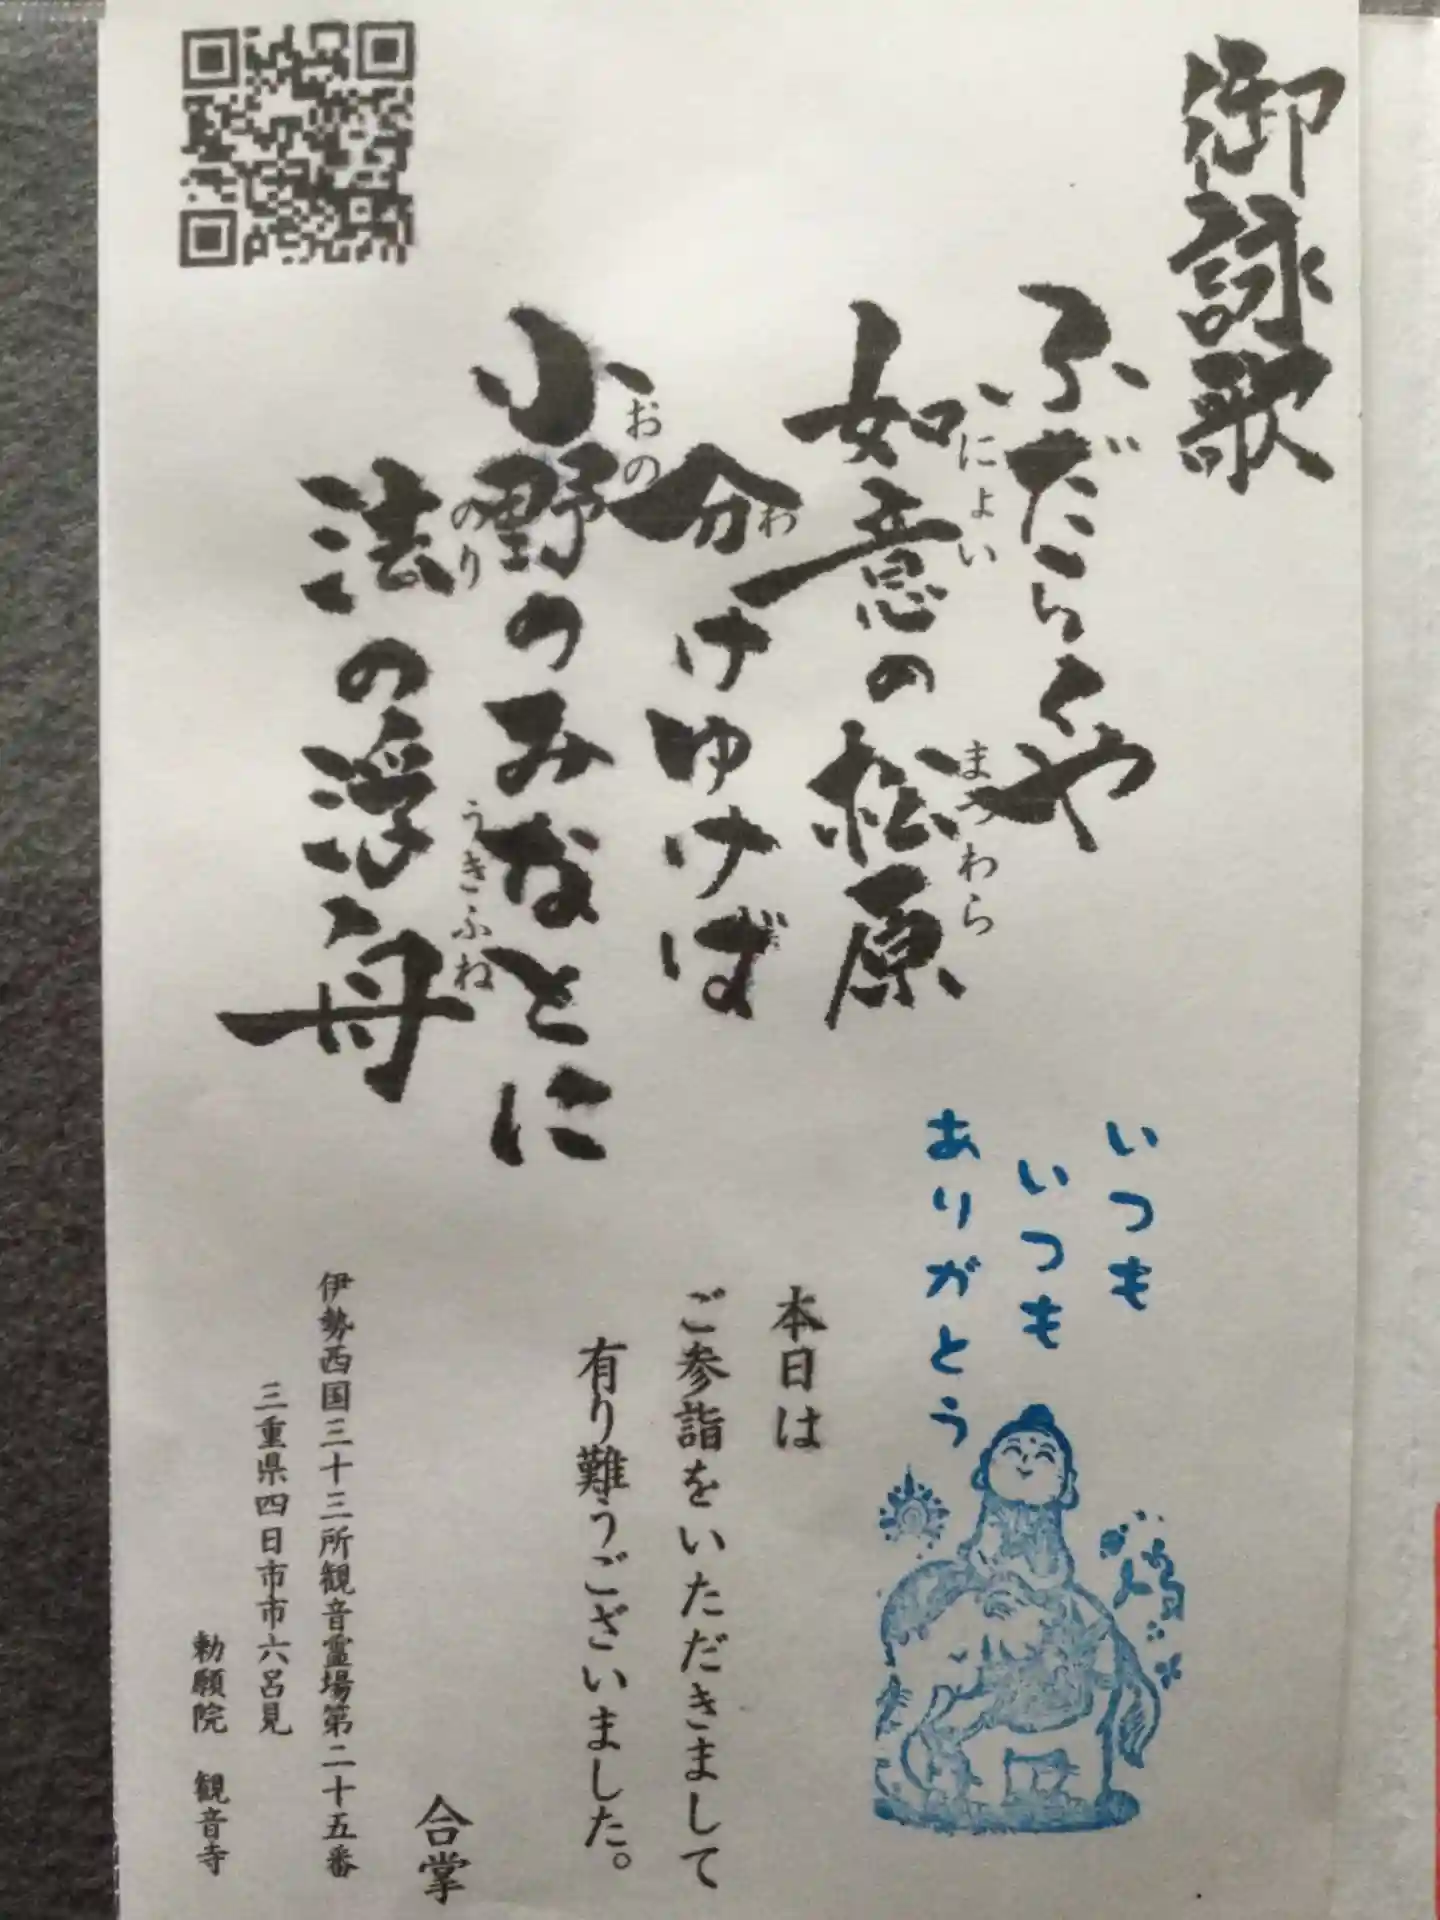 御詠歌
ふだらくや
如意の松原
にょい
まつわら
分けゆけば
わ
小野のみなとに
おの
法の浮舟
のり
うきふね
いつも
いつも
ありがとう
本日は
ご参詣をいただきまして
有り難うございました。
合掌
伊勢西国三十三所観音霊場第二十五番
三重県四日市市六呂見
勅願院 観音寺